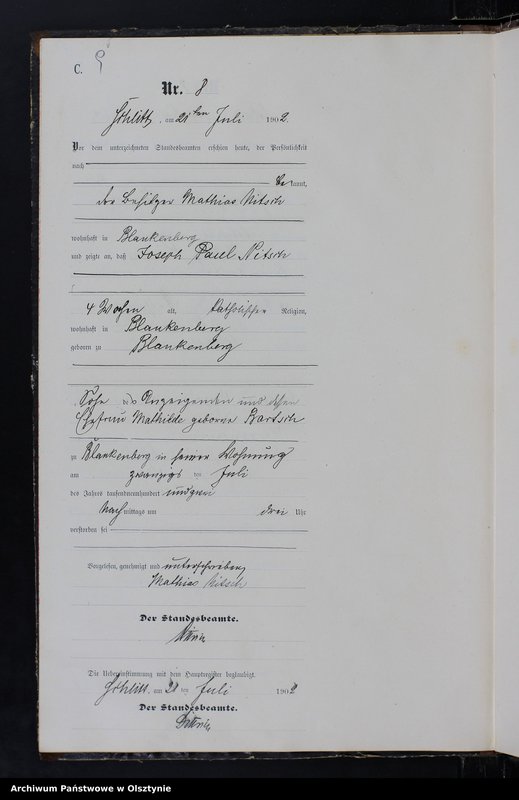 C. 9
Nr. 8
am 21ten Juli 1902
Vor dem unterzeichneten Standesbeamten erschien heute, der Persönlichkeit
nach
kannt,
der Besitzer Mathias Nitsch
wohnhaft in Blankenberg
und zeigte an, daß Joseph Paul Nitsch
4 Wochen alt, katholischer Religion,
wohnhaft in Blankenberg
geboren zu Blankenberg
Sohn des Anzeigenden und dessen
Ehefrau Mathilde geborene Bartsch
zu Blankenberg in seiner Wohnung
am zwanzigsten Juli
des Jahres tausendneunhundert und zwei
Nachmittags um drei Uhr
verstorben sei
Vorgelesen, genehmigt und unterschrieben
Mathias Nitsch
Der Standesbeamte.
Die Uebereinstimmung mit dem Hauptregister beglaubigt.
am 21 ten Juli 1902
Der Standesbeamte.
Archiwum Państwowe w Olsztynie